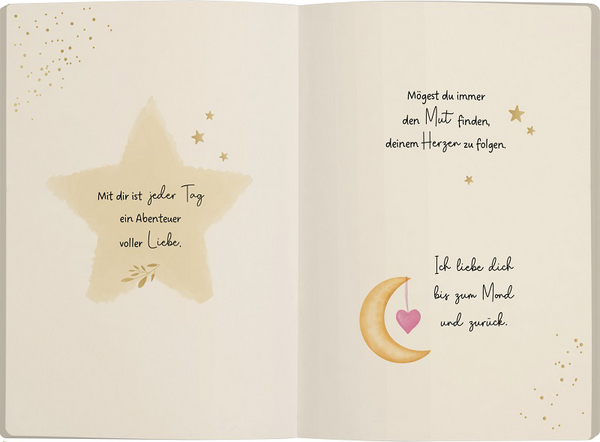 Mit dir ist jeder Tag
ein Abenteuer
voller Liebe.
Mögest du immer
den Mut finden,
deinem Herzen zu folgen.
Ich liebe dich
bis zum Mond
und zurück.